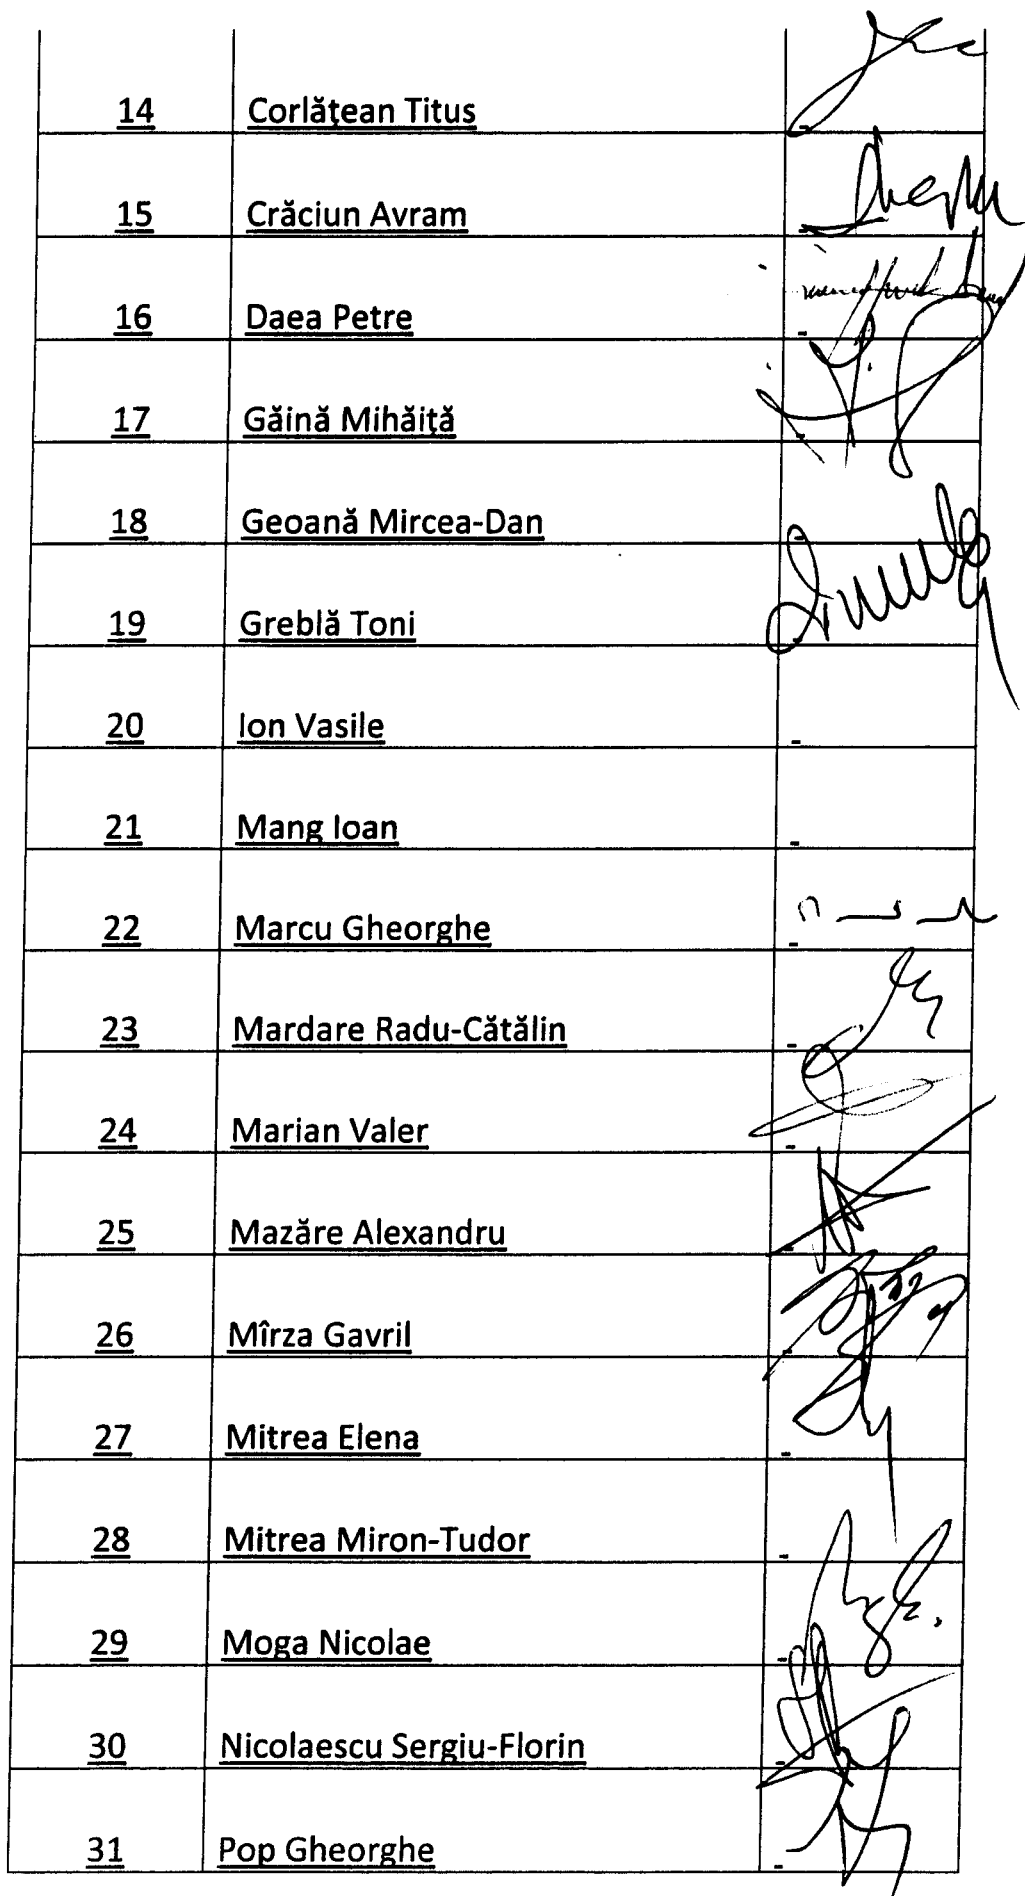 14 Corlățean Titus
15 Crăciun Avram
16 Daea Petre
17 Găină Mihăiță
18 Geoană Mircea-Dan
19 Greblă Toni
20 Ion Vasile
21 Mang Ioan
22 Marcu Gheorghe
23 Mardare Radu-Cătălin
24 Marian Valer
25 Mazăre Alexandru
26 Mîrza Gavril
27 Mitrea Elena
28 Mitrea Miron-Tudor
29 Moga Nicolae
30 Nicolaescu Sergiu-Florin
31 Pop Gheorghe